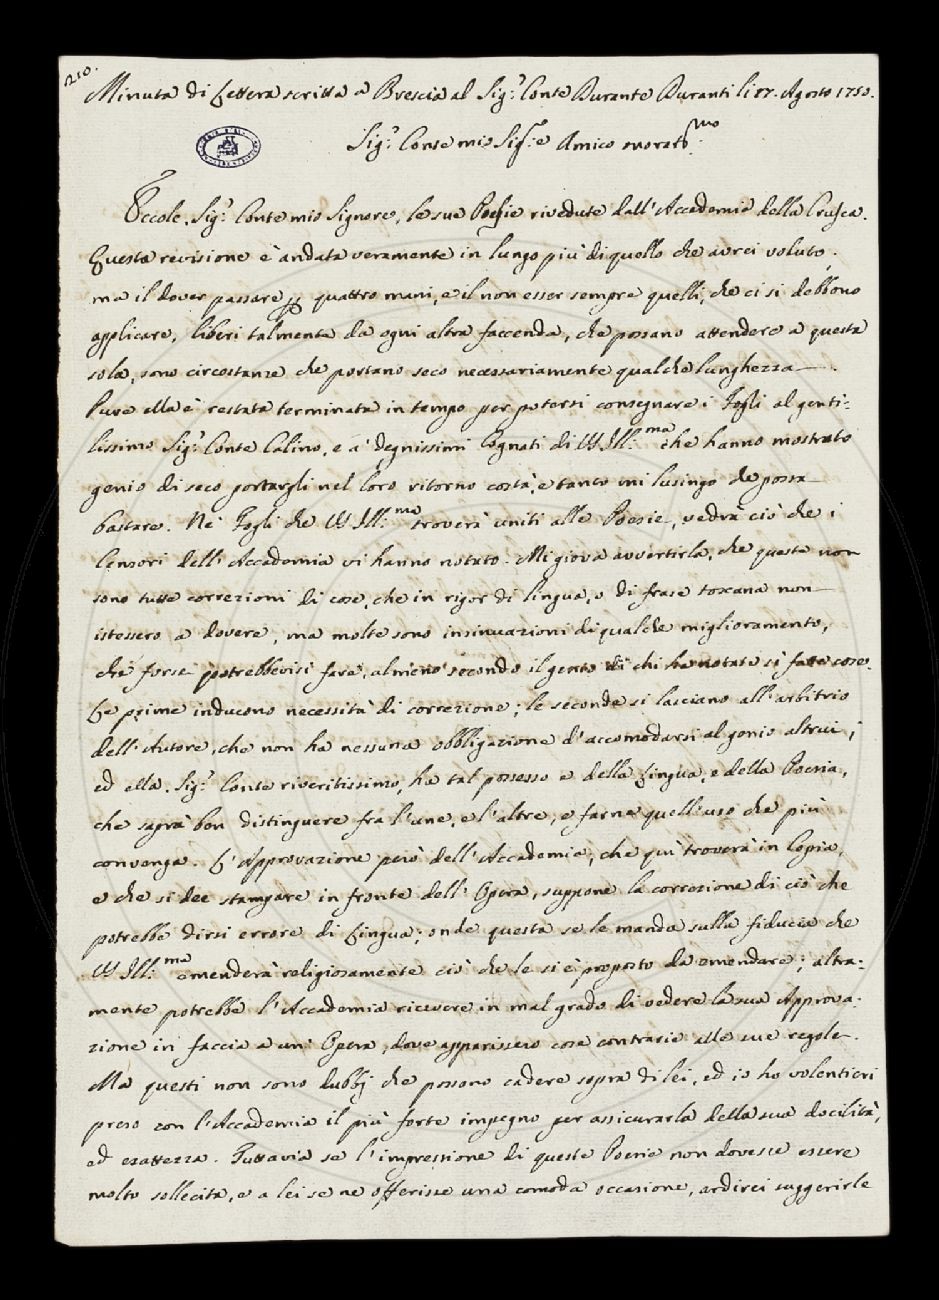 210.
Minuta di Lettera scritta a Brescia al Sig.r Conte Durante Duranti li 17. Agosto 1750.
Sig.r Conte mio Sig.re e Amico onorato.mo
Eccole, Sig.r Conte mio Signore, le sue Poesie rivedute dall'Accademia della Crusca.
Questa revisione è andata veramente in lungo più di quello che avrei voluto;
ma il dover passare p quattro mani, e il non esser sempre quelli, che ci si debbono
applicare, liberi talmente da ogni altra faccenda, che possano attendere a questa
sola, sono circostanze che portano seco necessariamente qualche lunghezza.
Pure ella è restata terminata in tempo per potersi consegnare i Fogli al genti-
lissimo Sig.r Conte Calino, e a' degnissimi Cognati di VS Ill.ma che hanno mostrato
genio di seco portargli nel loro ritorno costà, e tanto mi lusingo che possa
bastare. Ne' Fogli che VS Ill.ma troverà uniti alle Poesie, vedrà ciò che i
Censori dell'Accademia vi hanno notato. Mi giova avvertirla, che queste non
sono tutte correzioni di cose, che in rigor di lingua, o di frase toscana non
istessero a dovere, ma molte sono insinuazioni di qualche miglioramento,
che forse potrebbevisi fare, almeno secondo il genio di chi ha notato sì fatte cose.
Le prime inducono necessità di correzione; le seconde si lasciano all'arbitrio
dell'Autore, che non ha nessuna obbligazione d'accomodarsi al genio altrui;
ed ella, Sig.r Conte riveritissimo, ha tal possesso e della Lingua, e della Poesia,
che saprà ben distinguere fra l'une, e l'altre, e farne quell'uso che più
convenga. L'Approvazione però dell'Accademia, che quì troverà in Copia,
e che si dee stampare in fronte dell'Opera, suppone la correzione di ciò che
potrebbe dirsi errore di Lingua; onde questa se le manda sulla fiducia che
VS Ill.ma emenderà religiosamente ciò che le si è proposto da emendare; altra-
mente potrebbe l'Accademia ricevere in mal grado di vedere la sua Approva-
zione in faccia a un'Opera, dove apparissero cose contrarie alle sue regole.
Ma questi non sono dubbj che possono cadere sopra di lei, ed io ho volentieri
preso con l'Accademia il più forte impegno per assicurarla della sua docilità,
ed esattezza. Tuttavia se l'impressione di queste Poesie non dovesse essere
molto sollecita, e a lei se ne offerisse una comoda occasione, ardirei suggerirle